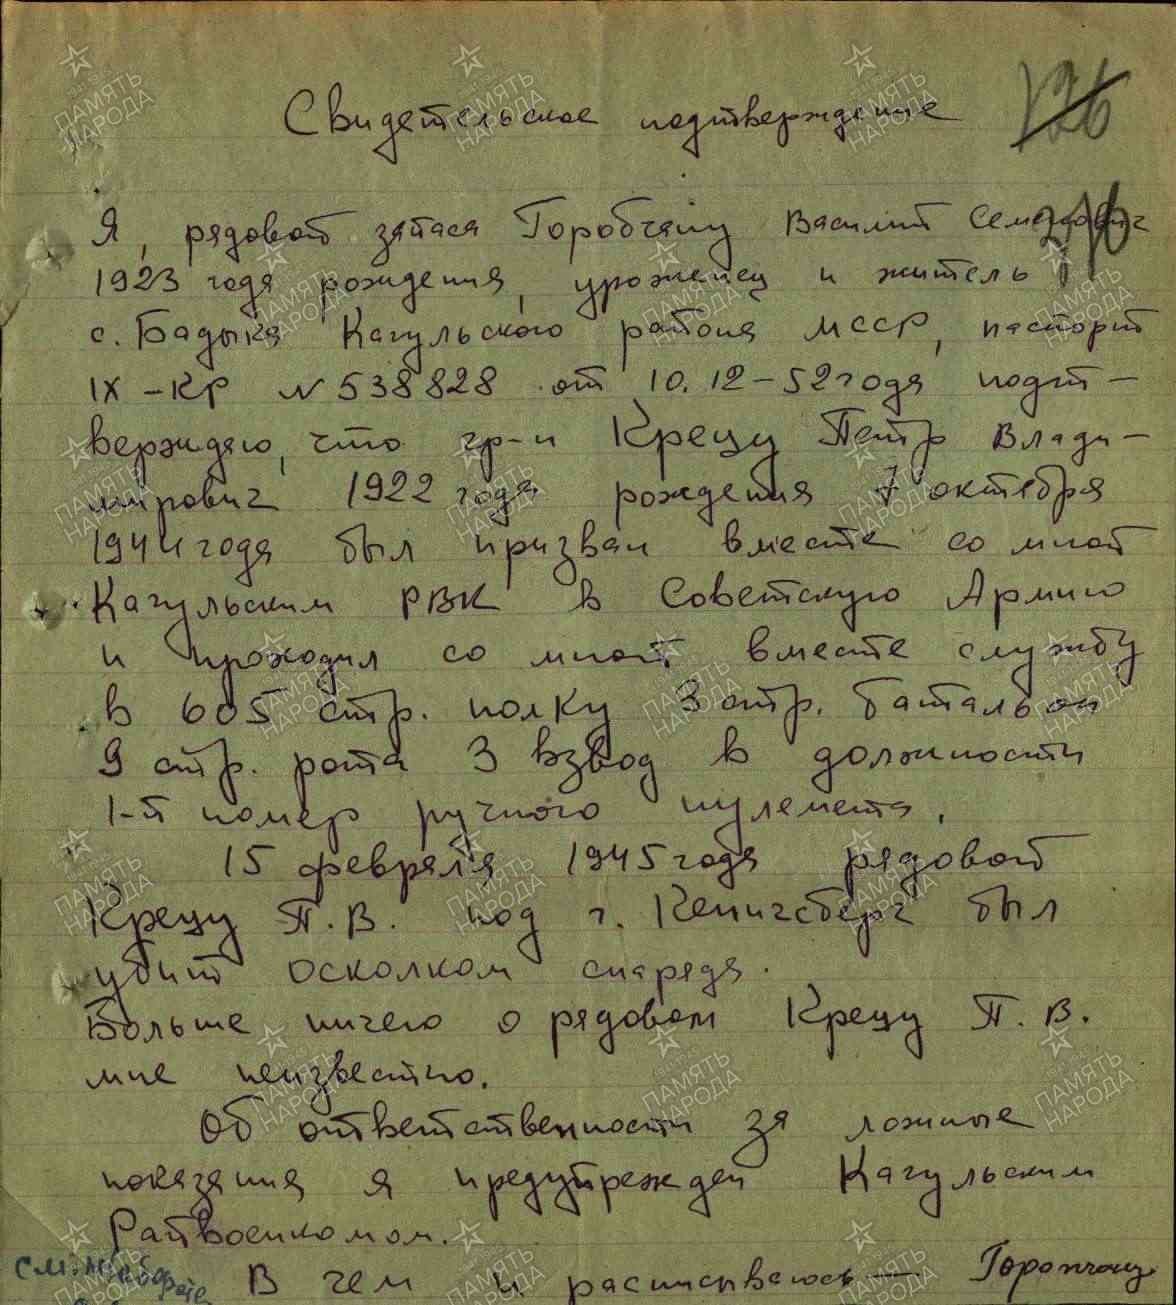 Свидетельское подтверждение
126
Я, рядовой запаса Горобчану Василий Семенович
1923 года рождения, уроженец и житель
с. Бадыка Кагульского района МССР, паспорт
IX-КР № 538828 от 10.12-52 года подт-
верждаю, что гр-н Крецу Петр Влади-
мирович 1922 года рождения 7 октября
1944 года был призван вместе со мной
Кагульским РВК в Советскую Армию
и проходил со мной вместе службу
в 605 стр. полку 3 стр. батальон
9 стр. рота 3 взвод в должности
1-й номер ручного пулемета.
15 февраля 1945 года рядовой
Крецу П.В. под г. Кенигсберг был
убит осколком снаряда.
Больше ничего о рядовом Крецу П.В.
мне неизвестно.
Об ответственности за ложные
показания я предупрежден Кагульским
Райвоенкомом.
см. на обороте
В чем и расписываюсь —
ПАМЯТЬ НАРОДА